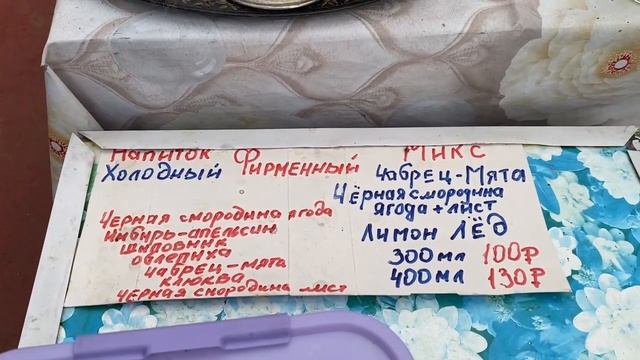 Напиток Фирменный
Холодный
Черная смородина ягода
Имбирь-апельсин
Шиповник
Облепиха
Чабрец-мята
Клюква
Черная смородина лист
Микс
Чабрец-Мята
Чёрная смородина
ягода + лист
Лимон Лёд
300мл 100₽
400мл 130₽